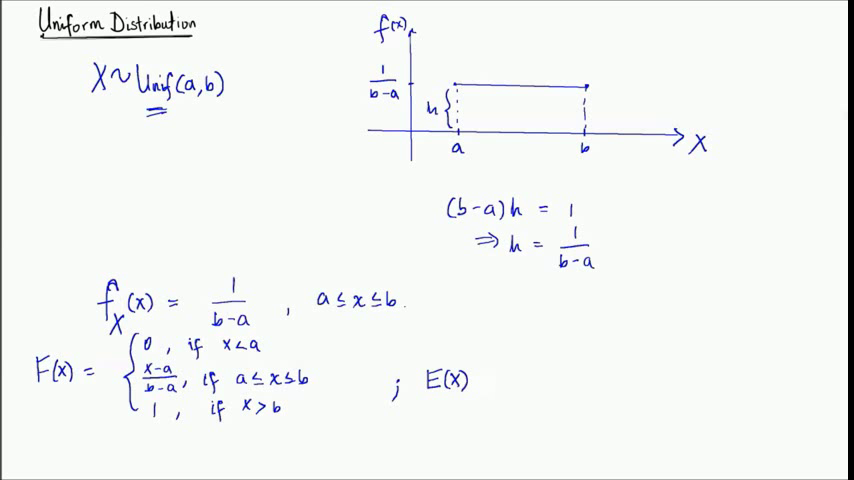 Uniform Distribution
X ~ Unif(a,b)
f(x)
1/(b-a)
h {
a b X
(b-a)h = 1
⇒ h = 1/(b-a)
f_X(x) = 1/(b-a) , a ≤ x ≤ b.
F(x) = { 0 , if x < a
(x-a)/(b-a) , if a ≤ x ≤ b ; E(X)
1 , if x > b